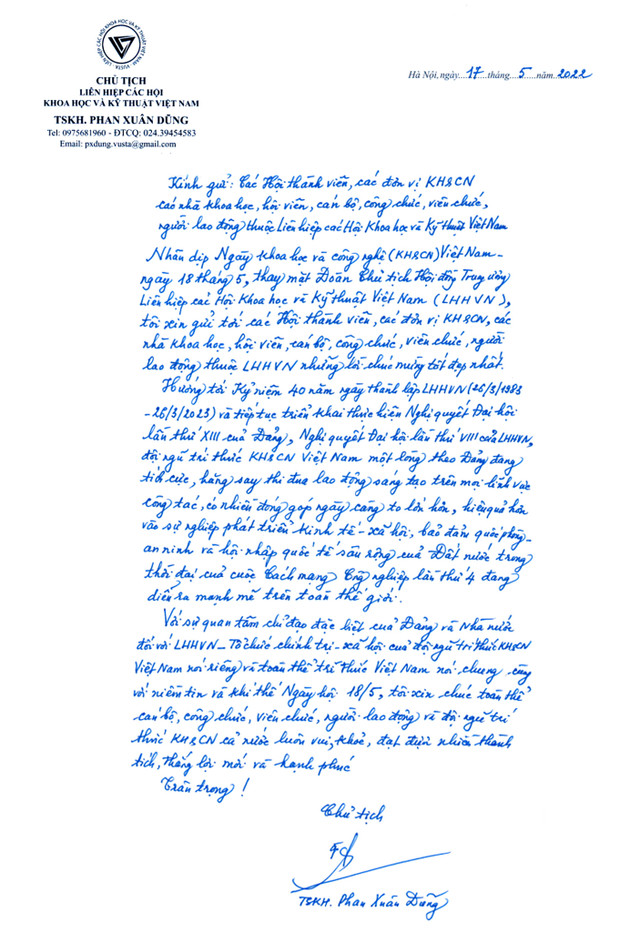 LIÊN HIỆP CÁC HỘI KHOA HỌC VÀ KỸ THUẬT VIỆT NAM
VUSTA
CHỦ TỊCH
LIÊN HIỆP CÁC HỘI
KHOA HỌC VÀ KỸ THUẬT VIỆT NAM
TSKH. PHAN XUÂN DŨNG
Tel: 0975681960 - ĐTCQ: 024.39454583
Email: pxdung.vusta@gmail.com
Hà Nội, ngày 17 tháng 5 năm 2022
Kính gửi: Các Hội thành viên, các đơn vị KH&CN
các nhà khoa học, hội viên, cán bộ, công chức, viên chức,
người lao động thuộc Liên hiệp các Hội Khoa học và Kỹ thuật Việt Nam
Nhân dịp Ngày khoa học và công nghệ (KH&CN) Việt Nam -
ngày 18 tháng 5, thay mặt Đoàn Chủ tịch Hội đồng Trung ương
Liên hiệp các Hội Khoa học và Kỹ thuật Việt Nam (LHHVN),
tôi xin gửi tới các Hội thành viên, các đơn vị KH&CN, các
nhà khoa học, hội viên, cán bộ, công chức, viên chức, người
lao động thuộc LHHVN những lời chúc mừng tốt đẹp nhất.
Hướng tới Kỷ niệm 40 năm ngày thành lập LHHVN (26/3/1983
-26/3/2023) và tiếp tục triển khai thực hiện Nghị quyết Đại hội
lần thứ XIII của Đảng, Nghị quyết Đại hội lần thứ VIII của LHHVN,
đội ngũ trí thức KH&CN Việt Nam một lòng theo Đảng đang
tích cực, hăng say thi đua lao động sáng tạo trên mọi lĩnh vực
công tác, có nhiều đóng góp ngày càng to lớn hơn, hiệu quả hơn
vào sự nghiệp phát triển kinh tế - xã hội, bảo đảm quốc phòng -
an ninh và hội nhập quốc tế sâu rộng của Đất nước trong
thời đại của cuộc Cách mạng Công nghiệp lần thứ 4 đang
diễn ra mạnh mẽ trên toàn thế giới.
Với sự quan tâm chỉ đạo đặc biệt của Đảng và Nhà nước
đối với LHHVN - Tổ chức chính trị - xã hội của đội ngũ trí thức KH&CN
Việt Nam nói riêng và toàn thể trí thức Việt Nam nói chung cùng
với niềm tin và khí thế Ngày hội 18/5, tôi xin chúc toàn thể
cán bộ, công chức, viên chức, người lao động và đội ngũ trí
thức KH&CN cả nước luôn vui, khoẻ, đạt được nhiều thành
tích, thắng lợi mới và hạnh phúc
Trân trọng!
Chủ tịch
TSKH. Phan Xuân Dũng